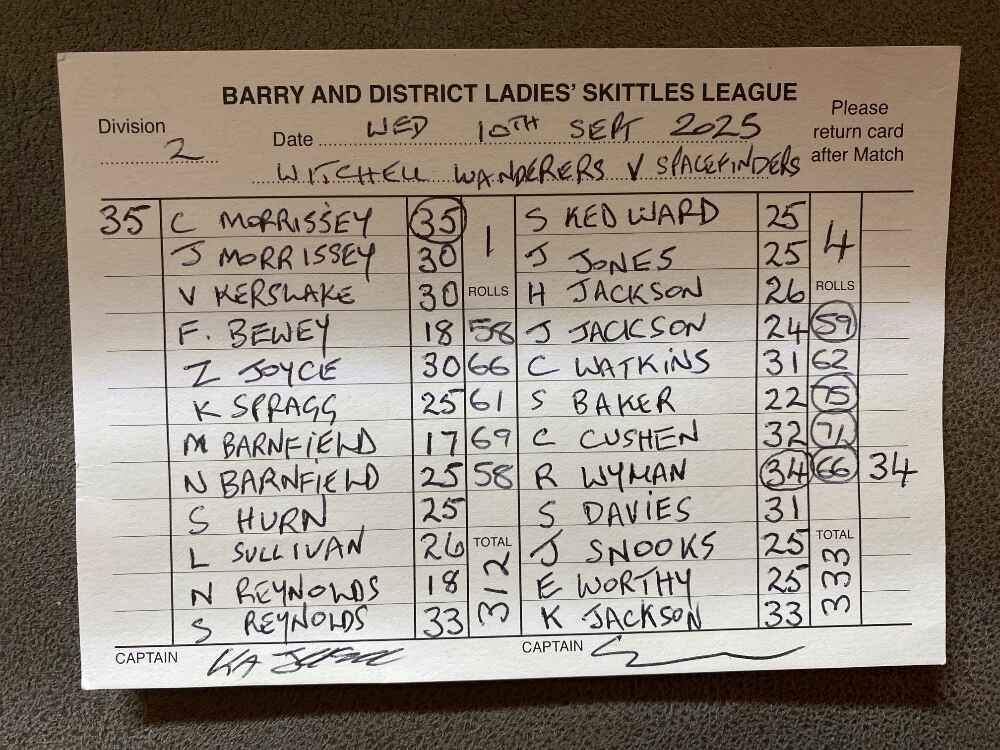 BARRY AND DISTRICT LADIES' SKITTLES LEAGUE
Please return card after Match
Division 2
Date WED 10TH SEPT 2025
WITCHELL WANDERERS V SPACEFINDERS
35 C MORRISSEY 35 1 S KEDWARD 25 4
J MORRISSEY 30 J JONES 25
V KERSLAKE 30 ROLLS H JACKSON 26 ROLLS
F. BEWEY 18 58 J JACKSON 24 59
Z JOYCE 30 66 C WATKINS 31 62
K SPRAGG 25 61 S BAKER 22 75
M BARNFIELD 17 69 C CUSHEN 32 71
N BARNFIELD 25 58 R WYMAN 34 66 34
S HURN 25 S DAVIES 31
L SULLIVAN 26 TOTAL J SNOOKS 25 TOTAL
N REYNOLDS 18 312 E WORTHY 25 333
S REYNOLDS 33 K JACKSON 33
CAPTAIN CAPTAIN